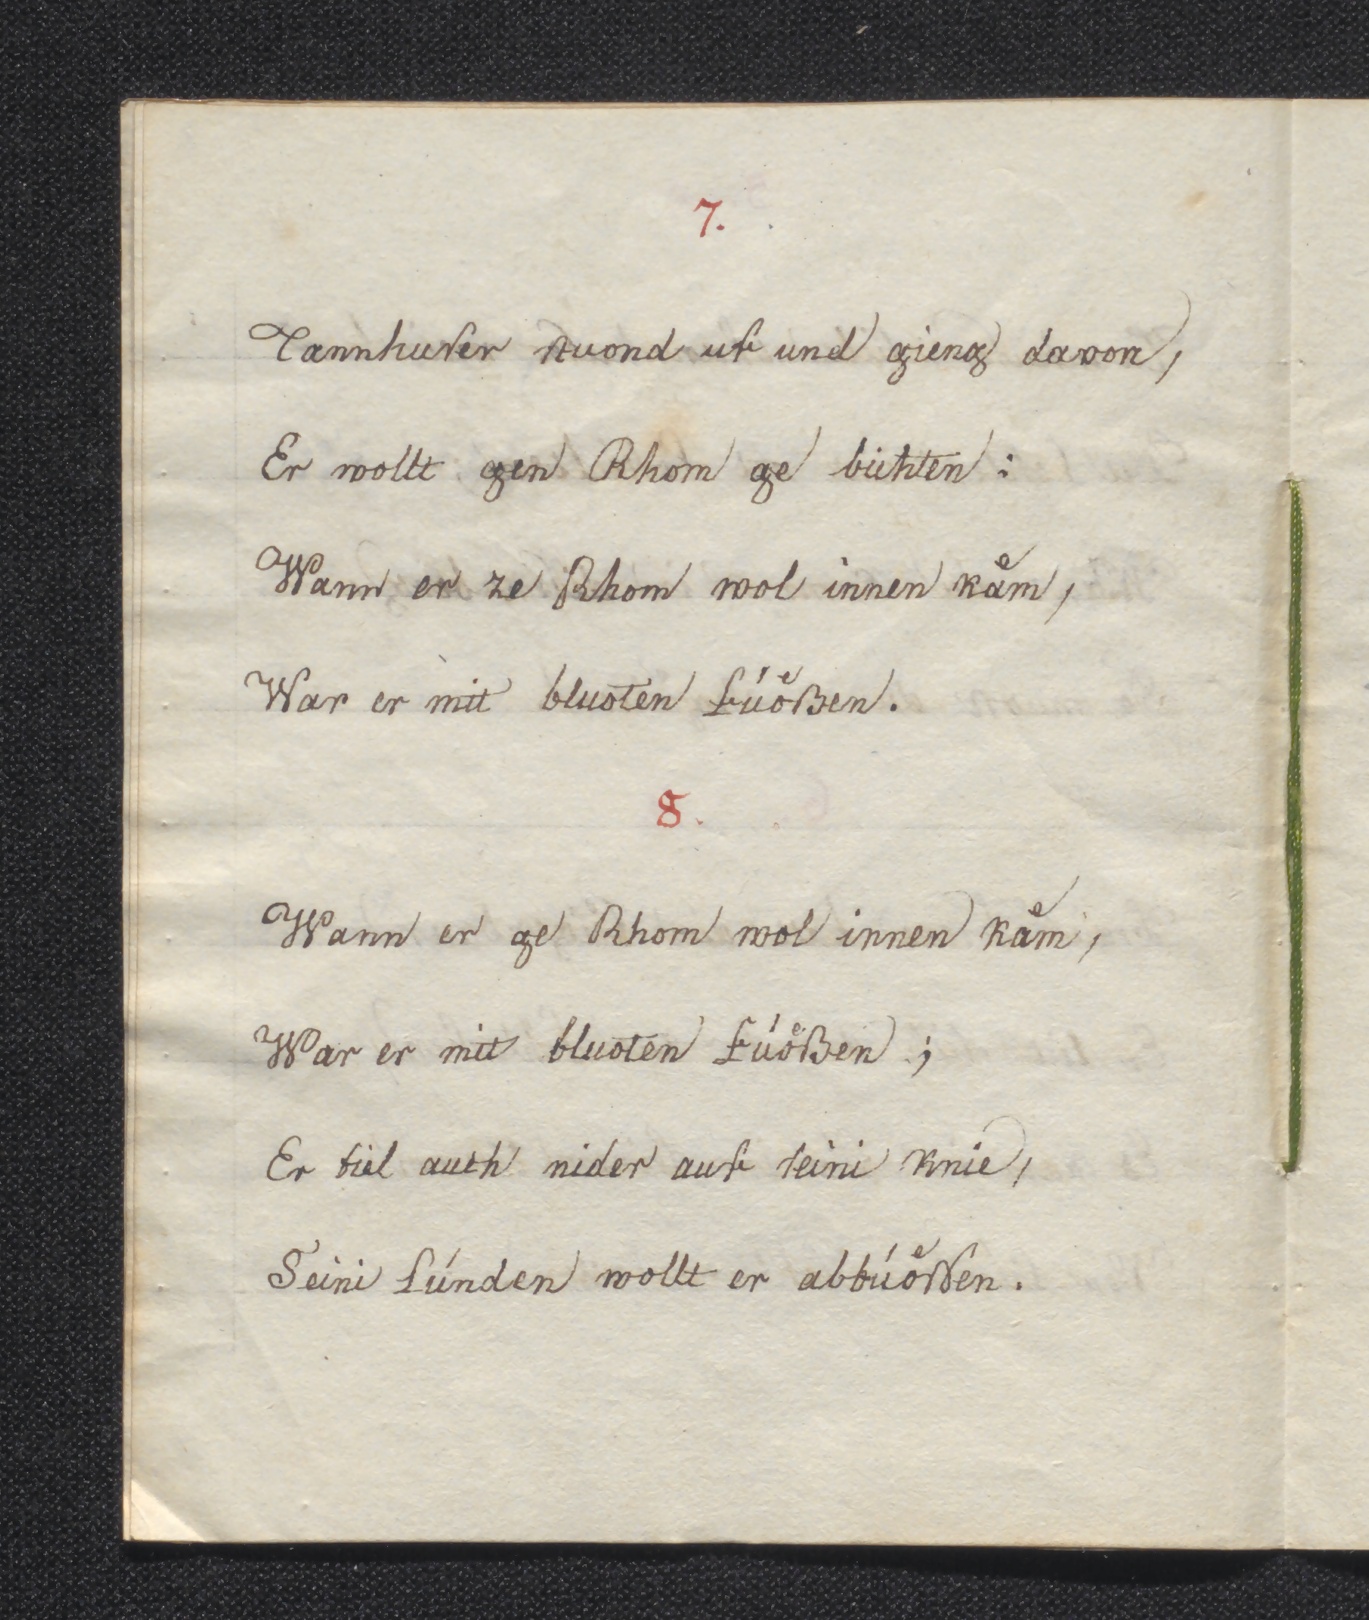 7.
Tannhuſer ſtuond uf und gieng davon,
Er wollt gen Rhom ge bichten:
Wann er ze Rhom wol innen kåͤm,
War er mit bluoten fúoͤßen.
8.
Wann er ge Rhom wol innen kåͤm,
War er mit bluoten fúoͤßen;
Er fiel auch nider auf ſeini Knie,
Seini ſúnden wollt er abbúoͤſſen.